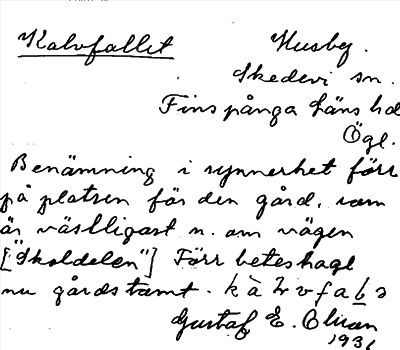 Kalvfallet Husby.
Skedevi sn.
Finspånga läns hd
Ögl.
Benämning i synnerhet förr
på platsen för den gård, som
är västligast n. om vägen
["Skoldelen"] Förr beteshage
nu gårdstomt.
Gustaf E.
1931